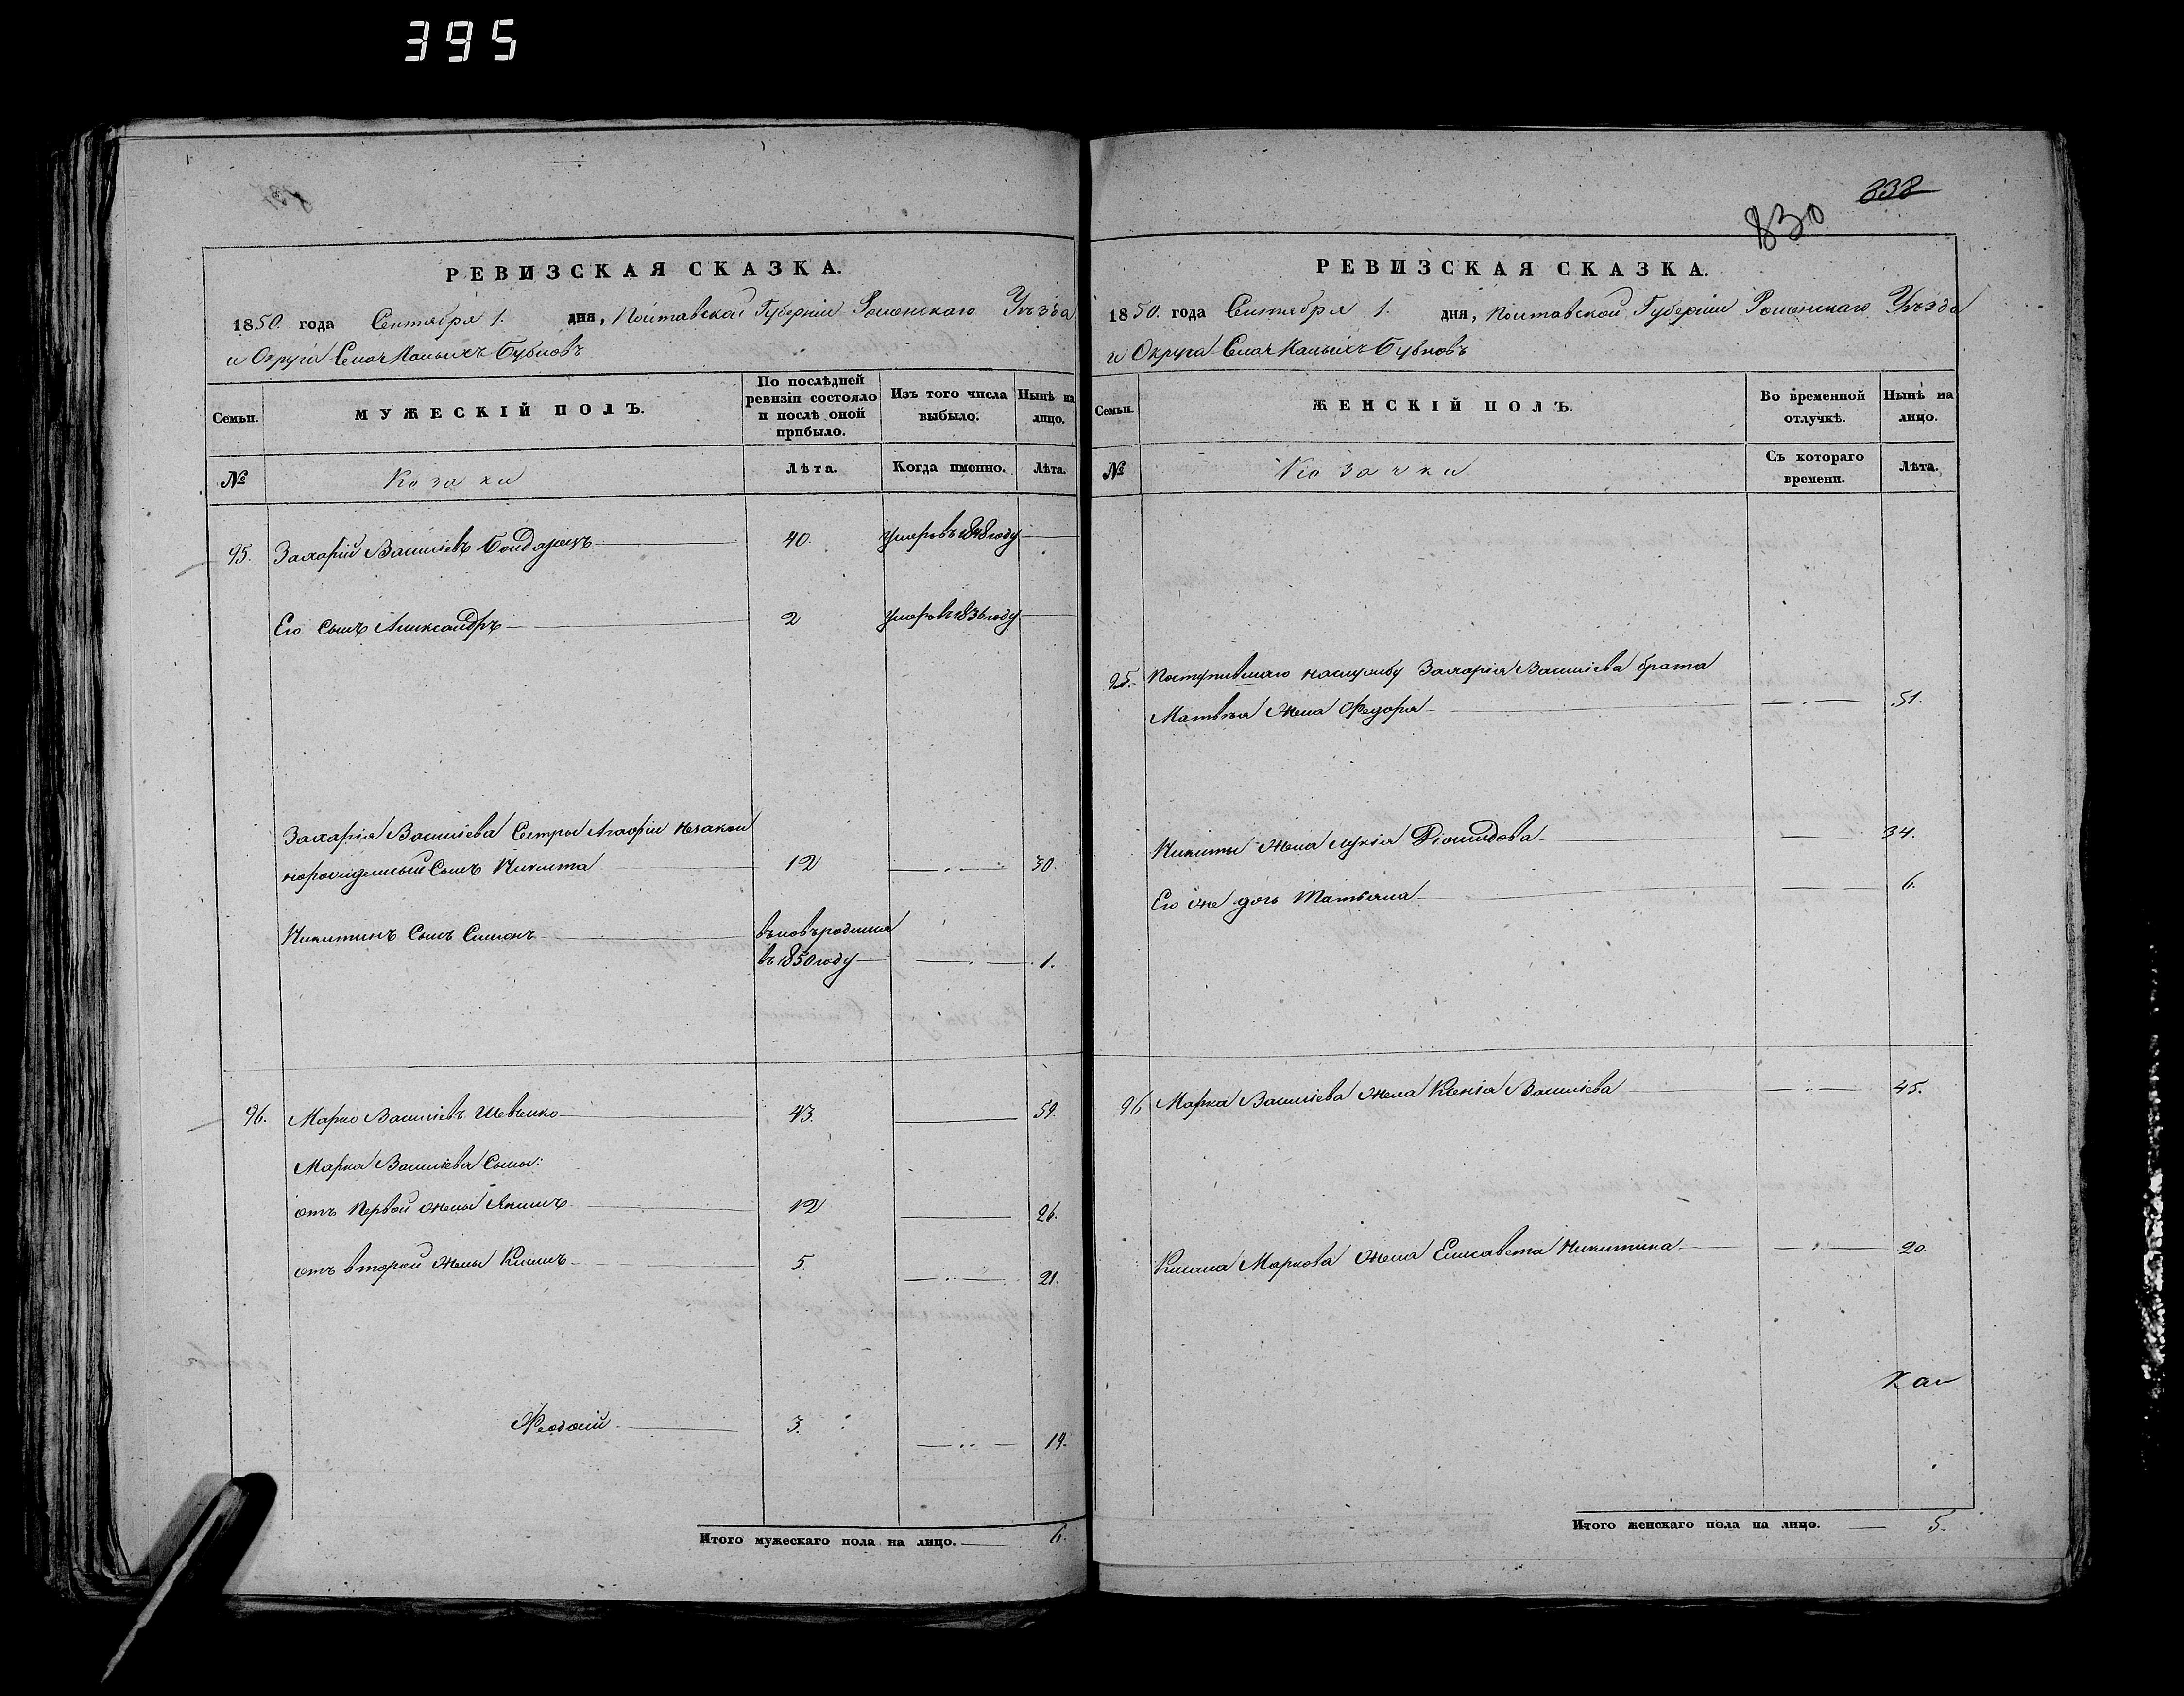 395
838
830
РЕВИЗСКАЯ СКАЗКА.
1850. года Сентября 1. дня, Полтавской Губерніи Роменскаго Уѣзда
и Округи Села Малыхъ Бубновъ
Семьи.
МУЖЕСКІЙ ПОЛЪ.
По послѣдней ревизіи состояло и послѣ оной прибыло.
Изъ того числа выбыло.
Нынѣ на лицо.
№
Козаки
Лѣта.
Когда именно.
Лѣта.
95. Захарій Васильевъ Бондарецъ 40. Умеръ въ 1848 году
Его сынъ Александръ 2 Умеръ въ 1836 году
Захарія Васильева Сестры Агафіи незакон
норожденный Сынъ Никита 12 30.
Никитинъ Сынъ Симонъ вновь родился
въ 1850 году 1.
96. Марко Васильевъ Шевченко 43. 59.
Марка Васильева Сыны:
отъ первой жены Якимъ 12 26.
отъ второй жены Климъ 5. 21.
Феодосій 3. 19.
Итого мужескаго пола на лицо. 6.
РЕВИЗСКАЯ СКАЗКА.
1850. года Сентября 1. дня, Полтавской Губерніи Роменскаго Уѣзда
и Округа Села Малыхъ Бубновъ
Семьи.
ЖЕНСКІЙ ПОЛЪ.
Во временной отлучкѣ.
Нынѣ на лицо.
№
Козачки
Съ котораго времени.
Лѣта.
95. Поступившаго на службу Захарія Васильева брата
Матвѣя жена Федора 51.
Никиты жена Лукія Діомидова 34.
Его же дочь Татьяна 6.
96 Марка Васильева жена Ксенія Васильева 45.
Клима Маркова жена Елисавета Никитина 20.
Итого женскаго пола на лицо. 5.